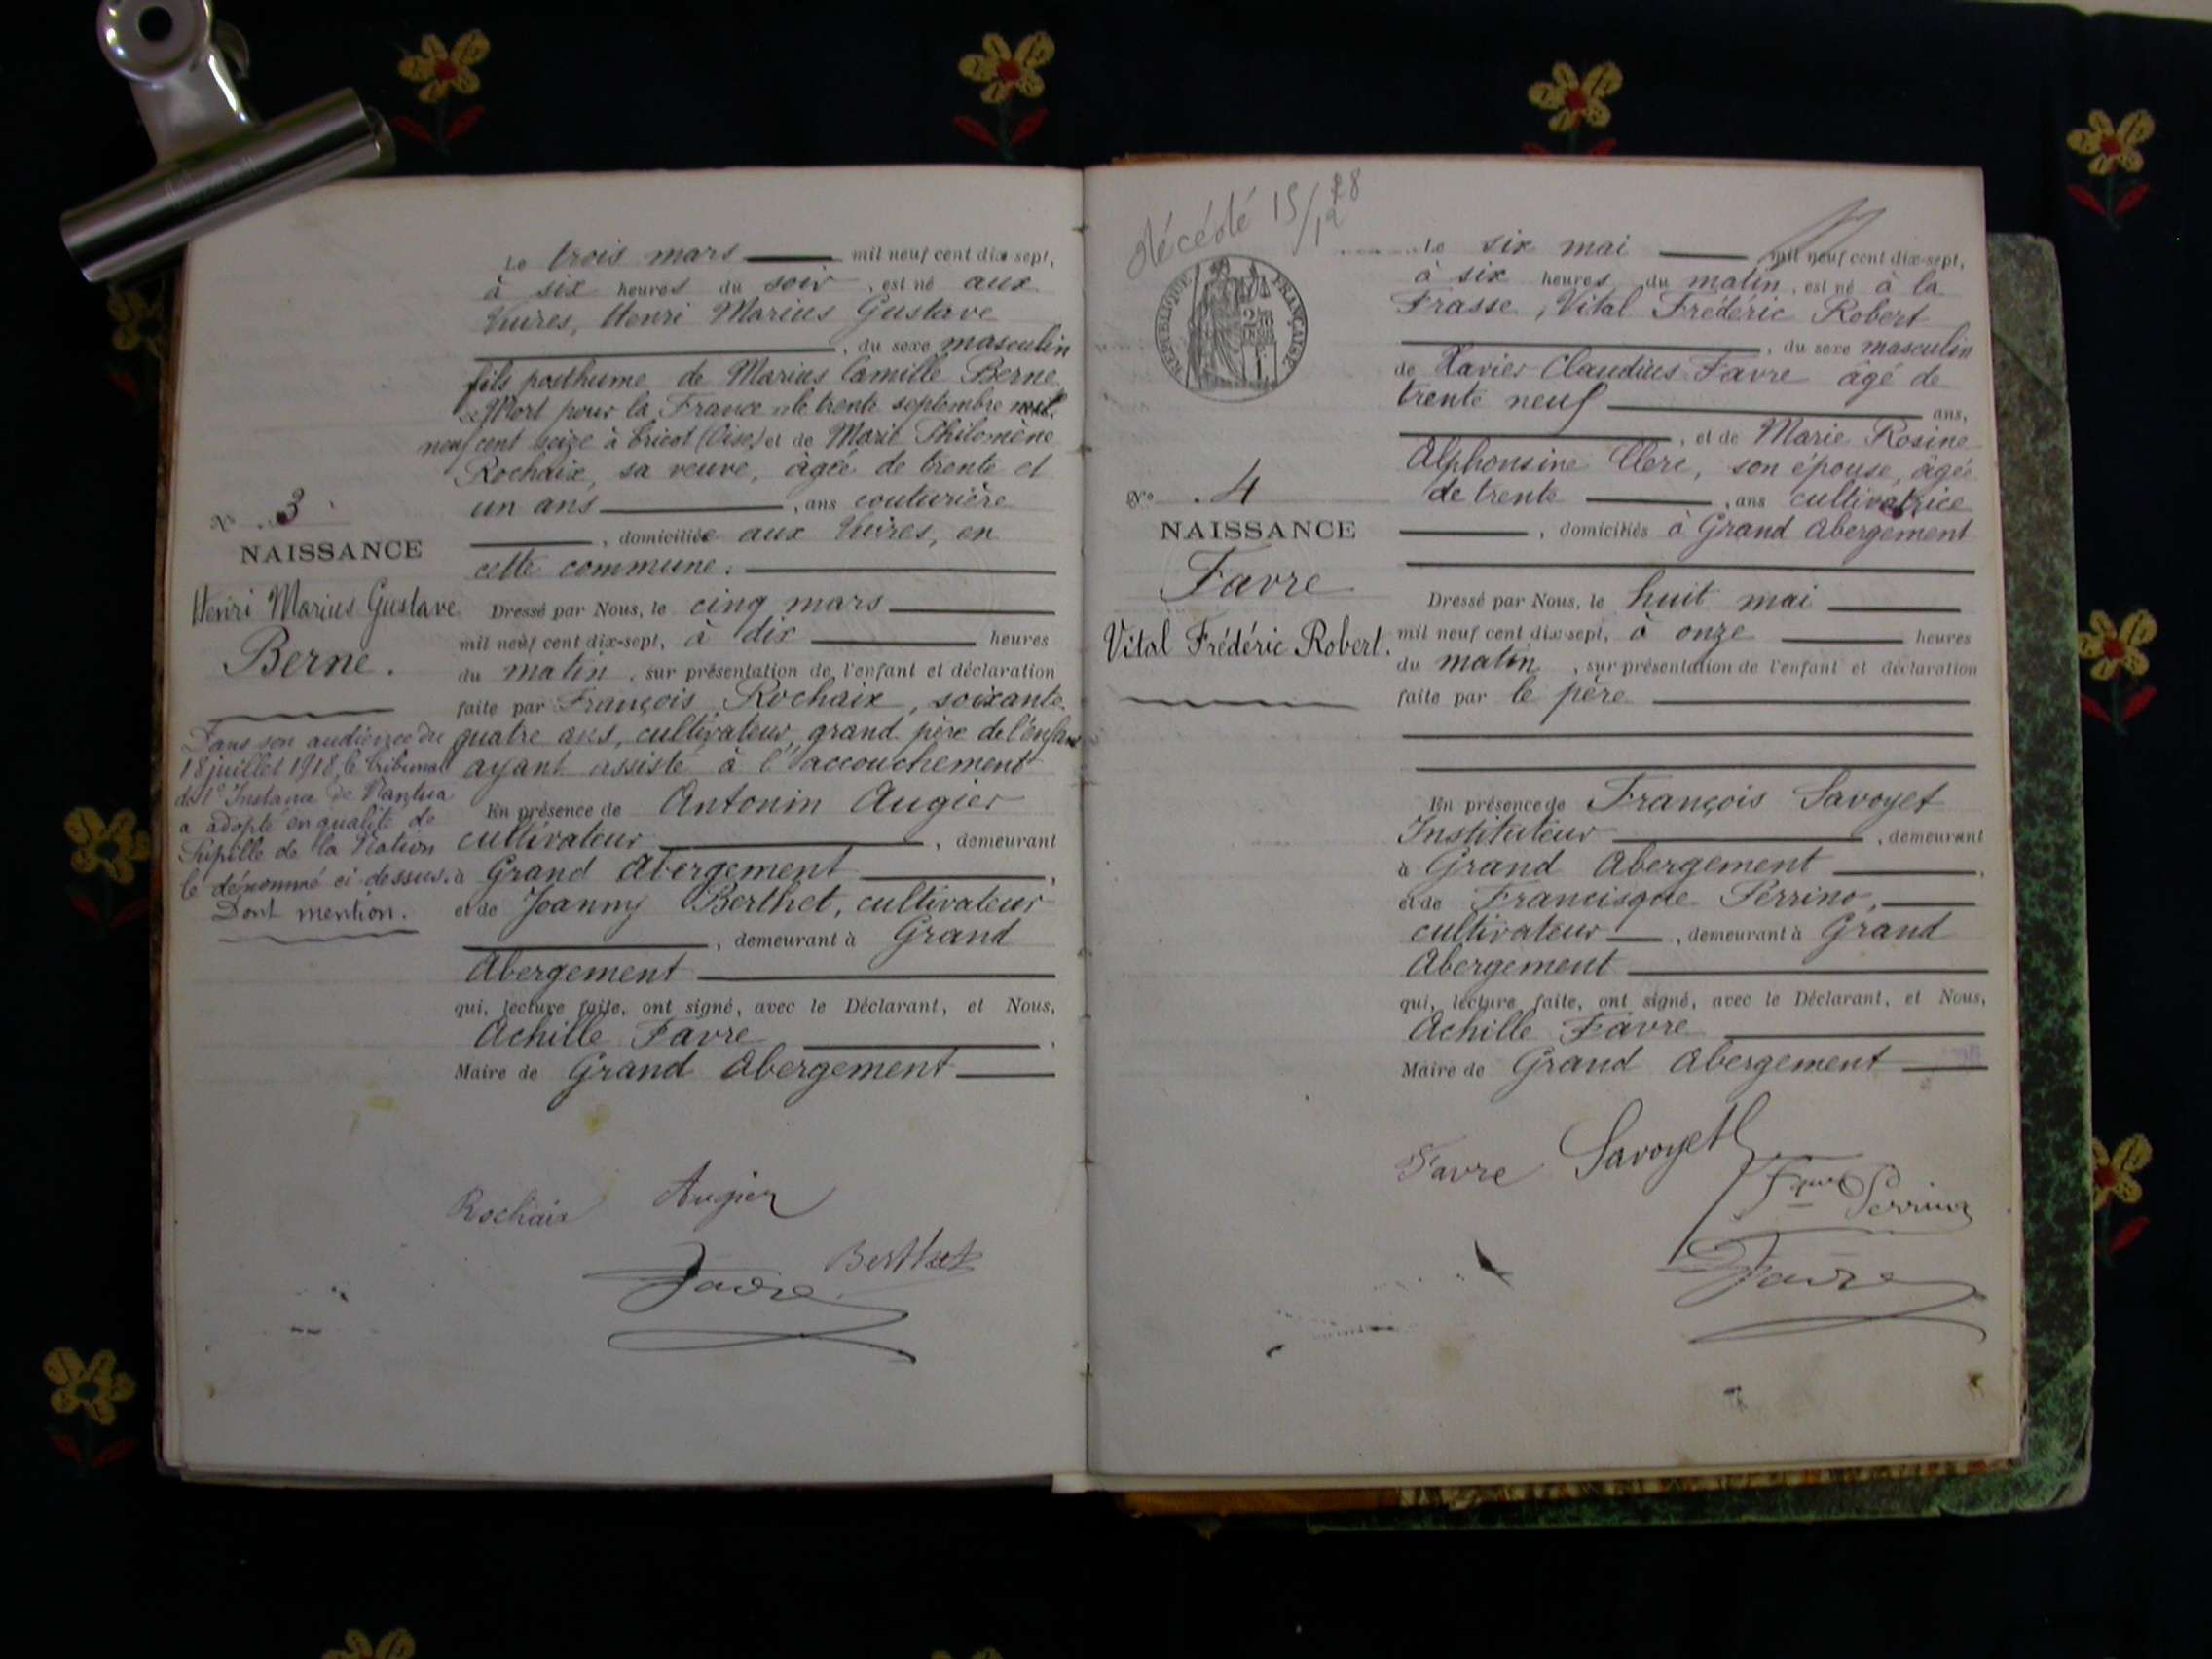 Le trois mars mil neuf cent dix sept,
à six heures du soir, est né aux
Vuires, Henri Marius Gustave
, du sexe masculin
fils posthume de Marius Camille Berne
Mort pour la France le trente septembre mil
neuf cent seize à Cricot (Oise) et de Marie Philomène
Rochaix, sa veuve, âgée de trente et
un ans, ans couturière
, domiciliée aux Vuires, en
cette commune.
N° 3
NAISSANCE
Henri Marius Gustave
Berne.
Dressé par Nous, le cinq mars
mil neuf cent dix-sept, à dix heures
du matin, sur présentation de l'enfant et déclaration
faite par François Rochaix, soixante
quatre ans, cultivateur, grand père de l'enfant
ayant assisté à l'accouchement
En présence de Antonin Augier
cultivateur, demeurant
à Grand Abergement,
et de Joanny Berthet, cultivateur
, demeurant à Grand
Abergement
qui, lecture faite, ont signé, avec le Déclarant, et Nous,
Achille Favre,
Maire de Grand Abergement
Dans son audience du
18 juillet 1918, le tribunal
de 1e Instance de Nantua
a adopté en qualité de
Pupille de la Nation
le dénommé ci-dessus.
Dont mention.
Rochaix Augier
Berthet
Favre
décédé 15/12 28
REPUBLIQUE FRANÇAISE
N° 4
NAISSANCE
Favre
Vital Frédéric Robert.
Le six mai mil neuf cent dix-sept,
à six heures du matin, est né à la
Frasse, Vital Frédéric Robert
, du sexe masculin
de Xavier Claudius Favre âgé de
trente neuf ans,
, et de Marie Rosine
Alphonsine Clerc, son épouse, âgée
de trente, ans cultivatrice
, domiciliés à Grand Abergement
Dressé par Nous, le huit mai
mil neuf cent dix-sept, à onze heures
du matin, sur présentation de l'enfant et déclaration
faite par le père
En présence de François Savoyet
Instituteur, demeurant
à Grand Abergement,
et de Francisque Perrino,
cultivateur, demeurant à Grand
Abergement
qui, lecture faite, ont signé, avec le Déclarant, et Nous,
Achille Favre
Maire de Grand Abergement
Favre Savoyet
Perrino
Favre